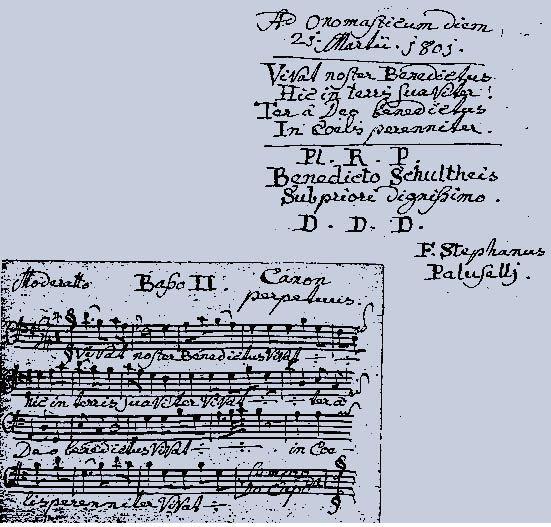 Ad Onomasticum diem
21. Martii. 1801.
Vivat noster Benedictus
Hic in terris suaviter!
Ter â Deo benedictus
In Coelis perenniter.
Pl. R. P.
Benedicto Schultheis
Subpriori dignißimo.
D. D. D.
F. Stephanus
Paluselli.
Moderatto Baßo II. Canon
perpetuus.
Vivat noster Benedictus Vivat
hic in terris suaviter Vivat ter â
Deo benedictus Vivat in Coe-
lis perenniter Vivat
Da Capo